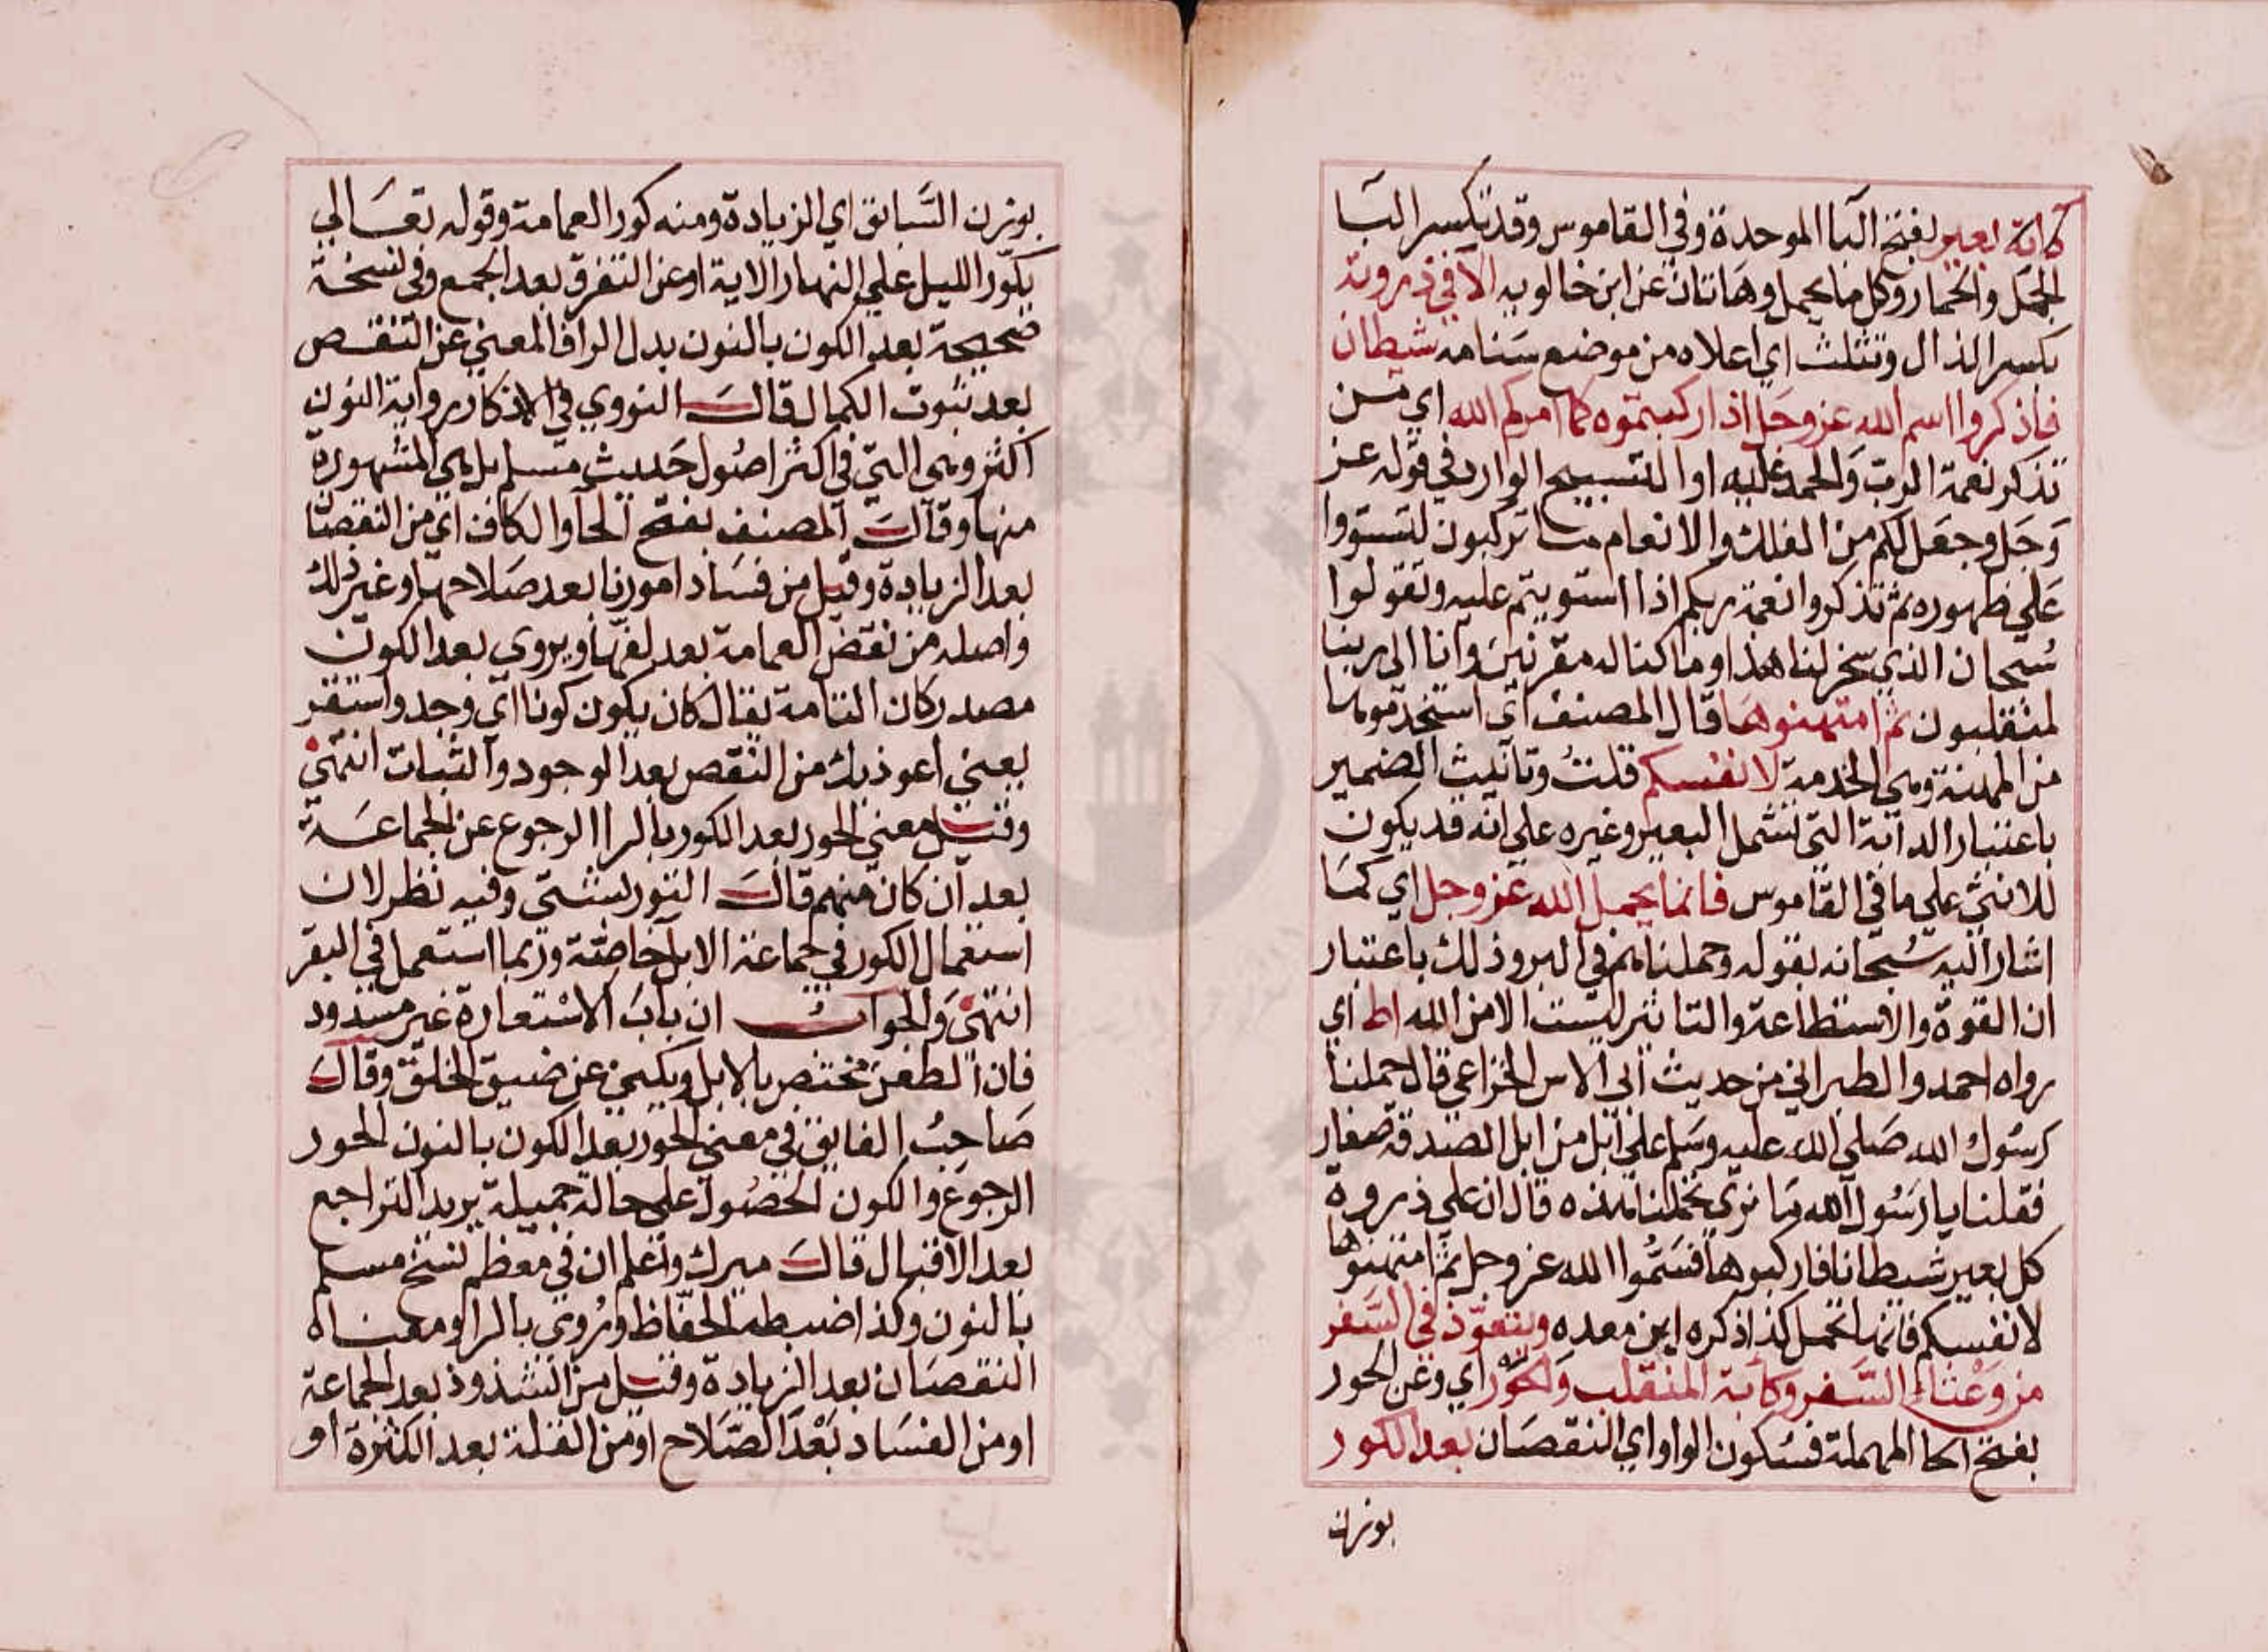 كابة بعير بفتح البا الموحدة وفي القاموس وقد تكسر البا
الجمل والحمار وكل ما يحمل وهاتان عن ابن خالويه الا في ذروته
بكسر الذال وتثلث اي اعلاه من موضع سنامه شيطان
فاذكروا اسم الله عز وجل اذا ركبتموه كما امركم الله اي من
تذكر نعمة الرب والحمد عليه او التسبيح الوارد في قوله عز
وجل وجعل لكم من الفلك والانعام ما تركبون لتستووا
علي ظهوره ثم تذكروا نعمة ربكم اذا استويتم عليه وتقولوا
سبحان الذي سخر لنا هذا وما كنا له مقرنين وانا الى ربنا
لمنقلبون ثم امتهنوها قال المصنف اي استخدموها
من المهنة وهي الخدمة لانفسكم قلت وتانيث الضمير
باعتبار الدابة التي تشمل البعير وغيره علي انه قد يكون
للانثي علي ما في القاموس فانما يحمل الله عز وجل اي كما
اشار اليه سبحانه بقوله وحملناهم في البر وذلك باعتبار
ان القوة والاستطاعة والتاثير ليست الا من الله اط اي
رواه احمد والطبراني من حديث ابي الاس الخزاعي قال حملنا
رسول الله صلى الله عليه وسلم علي ابل من ابل الصدقة صغار
فقلنا يا رسول الله ما نري تحملنا هذه قال ان علي ذروة
كل بعير شيطانا فاركبوها فسموا الله عز وجل ثم امتهنوها
لانفسكم فانها تحمل كذا ذكره ابن معده ويتعوذ في السفر
من وعثاء السفر وكابة المنقلب والحور اي وعن الحور
بفتح الحا المهملة فسكون الواو اي النقصان بعد الكور
بوزن
بوزن السابق اي الزيادة ومنه كور العمامة وقوله تعالي
يكور الليل علي النهار الاية او عن التفرق بعد الجمع وفي نسخة
صحيحة بعد الكون بالنون بدل الرا فالمعني عن التنقص
بعد ثبوت الكمال قال النووي في الاذكار رواية النون
اكثر وهي التي في اكثر اصول حديث مسلم بل هي المشهورة
منها وقال المصنف بفتح الحا والكاف اي من النقصان
بعد الزيادة وقيل من فساد امورنا بعد صلاحها وغير ذلك
واصله من نقض العمامة بعد لفها ويروي بعد الكون
مصدر كان التامة يقال كان يكون كونا اي وجد واستقر
يعني اعوذ بك من النقص بعد الوجود والثبات انتهي
وقيل معني الحور بعد الكور بالرا الرجوع عن الجماعة
بعد ان كان منهم قال التوربشتي وفيه نظر لان
استعمال الكور في جماعة الابل خاصة وربما استعمل في البقر
انتهي والجواب ان باب الاستعارة غير مسدود
فان العطن مختص بالابل ويكني عن ضيق الخلق وقال
صاحب الفايق في معني الحور بعد الكون بالنون الحور
الرجوع والكون الحصول علي حالة جميلة يريد التراجع
بعد الاقبال قال ميرك واعلم ان في معظم نسخ مسلم
بالنون وكذا ضبطه الحفاظ وروي بالرا ومعناه
النقصان بعد الزيادة وقيل من الشذوذ بعد الجماعة
او من الفساد بعد الصلاح او من القلة بعد الكثرة او